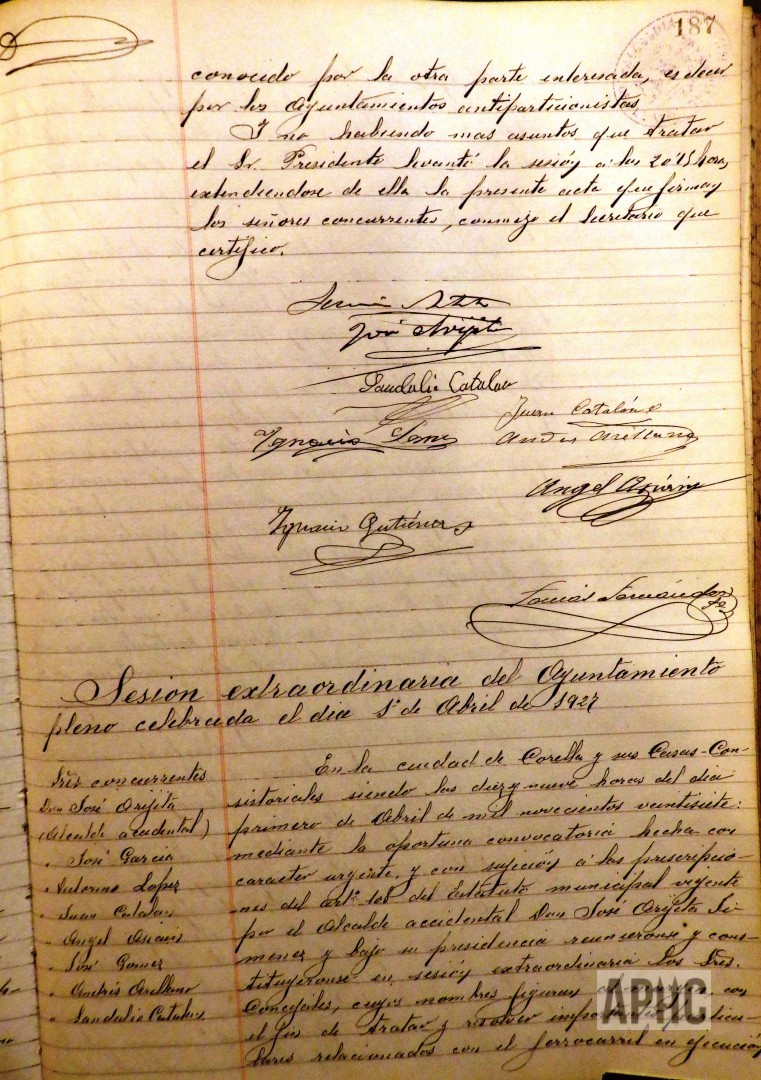 187
conocido por la otra parte interesada, es decir
por los Ayuntamientos antiparticionistas
Y no habiendo mas asuntos que tratar
el Sr. Presidente levantó la sesión a las 20'15 horas,
extendiendose de ella la presente acta que firman
los señores concurrentes, conmigo el Secretario que
certifico.
José Arijita
Sandalio Catalan
Juan Catalán
Ignacio
Andrés Arellano
Angel
Ignacio Gutiérrez
Tomás Fernández
Sesion extraordinaria del Ayuntamiento
pleno celebrada el dia 1º de Abril de 1927
Sres concurrentes
Don José Arijita
(Alcalde accidental)
" José Garcia
" Lopez
" Juan Catalan
" Angel
" José Gomez
" Andrés Arellano
" Sandalio Catalan
En la ciudad de Corella y sus Casas-Con-
sistoriales siendo las diez y nueve horas del dia
primero de Abril de mil novecientos veintisiete:
mediante la oportuna convocatoria hecha con
caracter urgente, y con sujeción á las prescripcio-
nes del artº del Estatuto municipal vigente
por el Alcalde accidental Don José Arijita
y bajo su presidencia reunieronse y cons-
tituyeronse en sesión extraordinaria los Sres.
Concejales, cuyos nombres figuran con
el fin de tratar y resolver
relacionados con el ferrocarril en ejecución
APHC